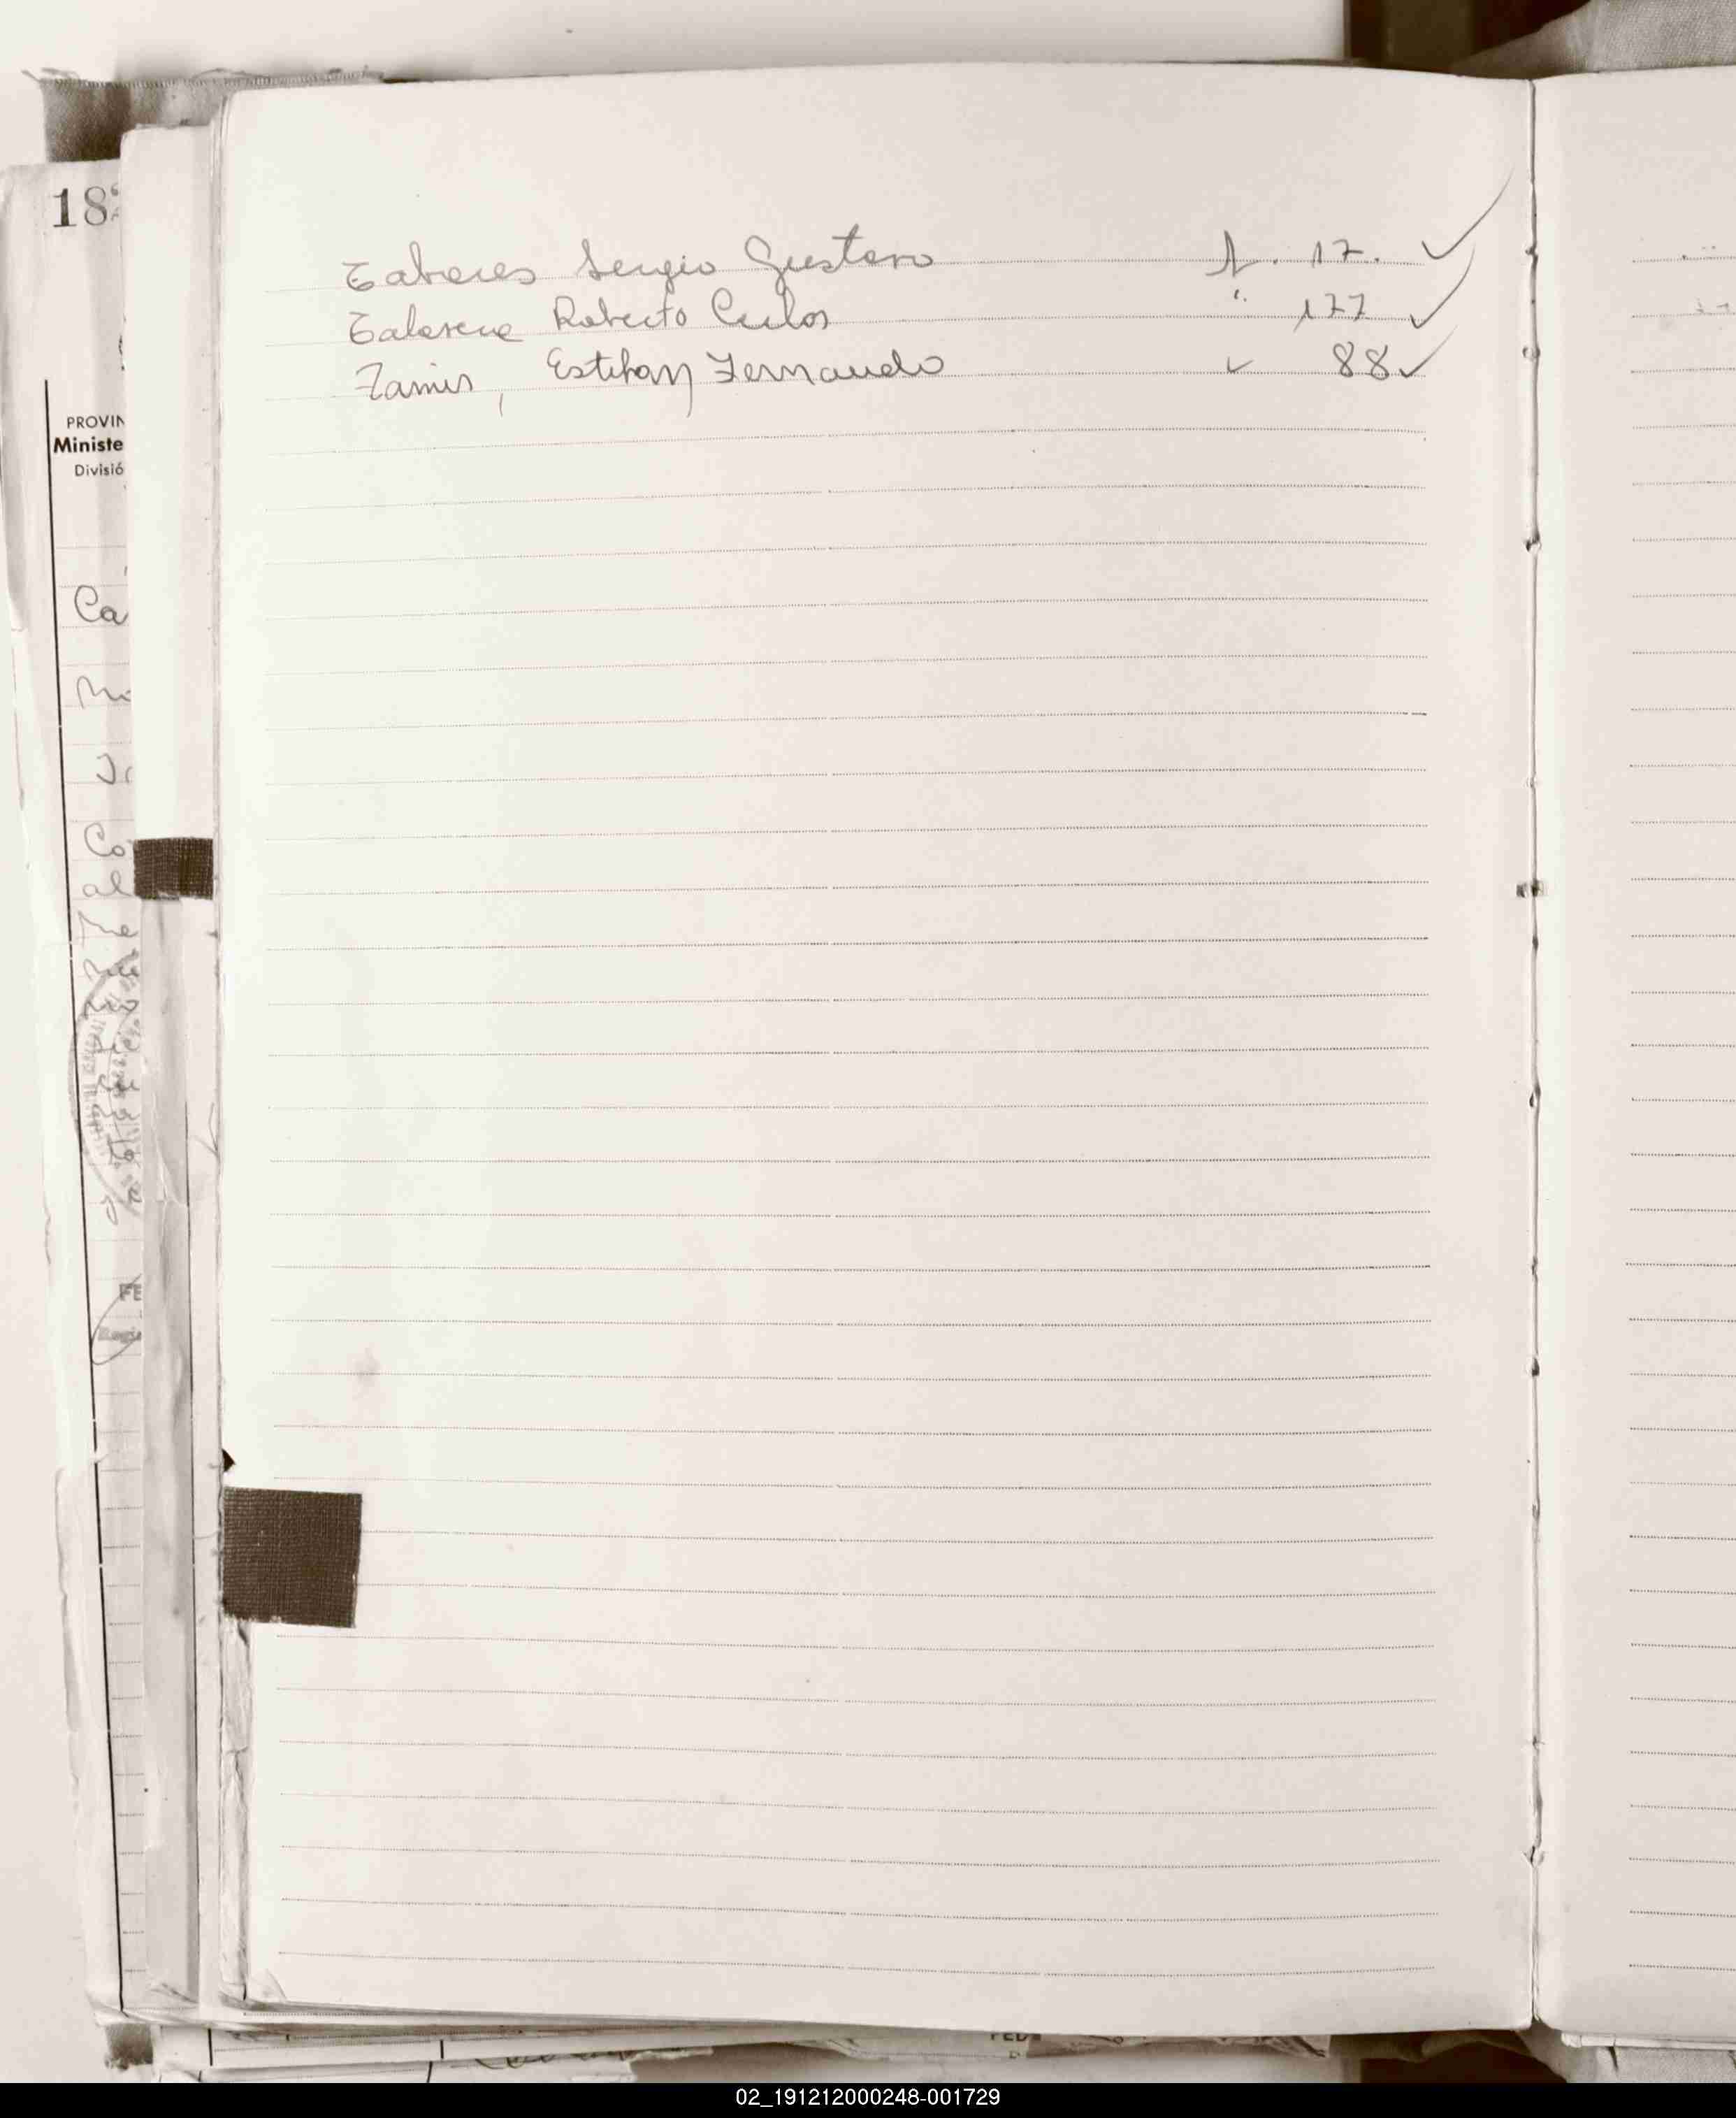 18
PROVIN
Ministe
Divisió
Ca
Co
al
FE
Tabares Sergio Gustavo A. 17. ✓
Talavera Roberto Carlos " 177 ✓
Zamir, Esteban Fernando ✓ 88 ✓
02_191212000248-001729